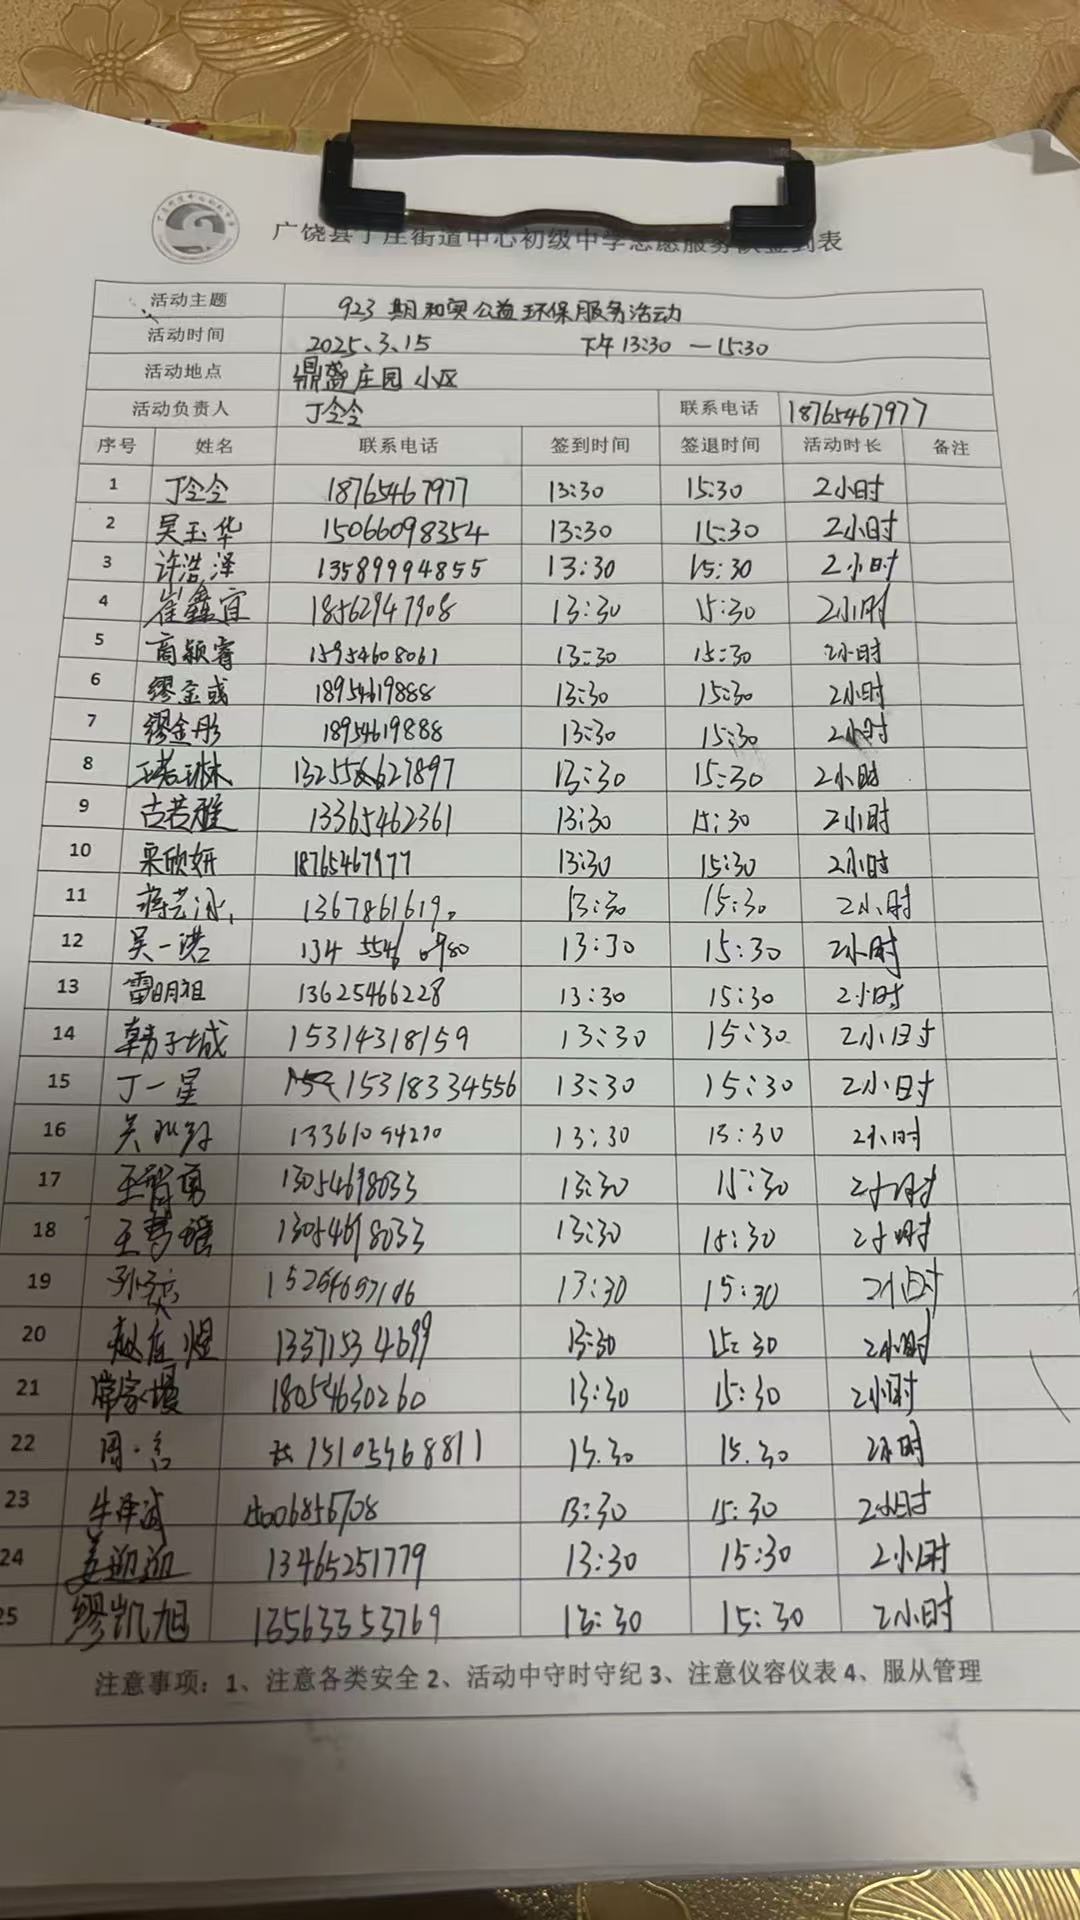 广饶县丁庄街道中心初级中学志愿服务队签到表
活动主题 923期和奥公益环保服务活动
活动时间 2025.3.15 下午13:30—15:30
活动地点 鼎盛庄园小区
活动负责人 丁令令 联系电话 18765467977
序号 姓名 联系电话 签到时间 签退时间 活动时长 备注
1 丁令令 18765467977 13:30 15:30 2小时
2 吴玉华 15066098354 13:30 15:30 2小时
3 许浩泽 13589994855 13:30 15:30 2小时
4 崔鑫宜 18562947908 13:30 15:30 2小时
5 商颖睿 15954608061 13:30 15:30 2小时
6 缪金彧 18954619888 13:30 15:30 2小时
7 缪金彤 18954619888 13:30 15:30 2小时
8 王若琳 13:30 15:30 2小时
9 古若雅 13365462361 13:30 15:30 2小时
10 栗欣妍 18765467977 13:30 15:30 2小时
11 蒋艺冰 13678616190 13:30 15:30 2小时
12 吴一诺 134 5546 0980 13:30 15:30 2小时
13 雷明祖 13625466228 13:30 15:30 2小时
14 韩子城 15314318159 13:30 15:30 2小时
15 丁一星 15318334556 13:30 15:30 2小时
16 13361094270 13:30 15:30 2小时
17 13054698033 13:30 15:30 2小时
18 13054698033 13:30 15:30 2小时
19 13:30 15:30 2小时
20 13371534699 13:30 15:30 2小时
21 常家堰 18054630260 13:30 15:30 2小时
22 15105468811 13.30 15.30 2小时
23 牛泽浦 13:30 15:30 2小时
24 姜迎迎 13465251779 13:30 15:30 2小时
25 缪凯旭 13563353769 13:30 15:30 2小时
注意事项：1、注意各类安全 2、活动中守时守纪 3、注意仪容仪表 4、服从管理